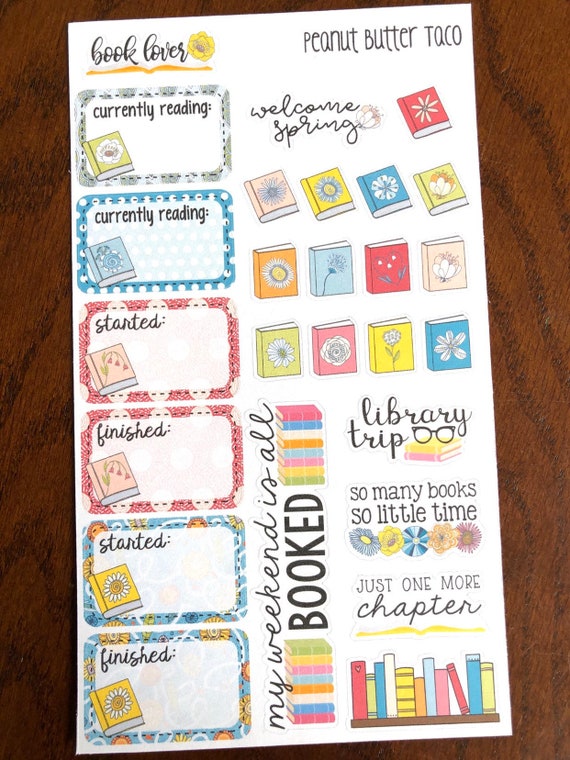 book lover
Peanut Butter Taco
currently reading:
welcome
spring
currently reading:
started:
finished:
started:
finished:
my weekend is all
BOOKED
library
trip
so many books
so little time
JUST ONE MORE
chapter